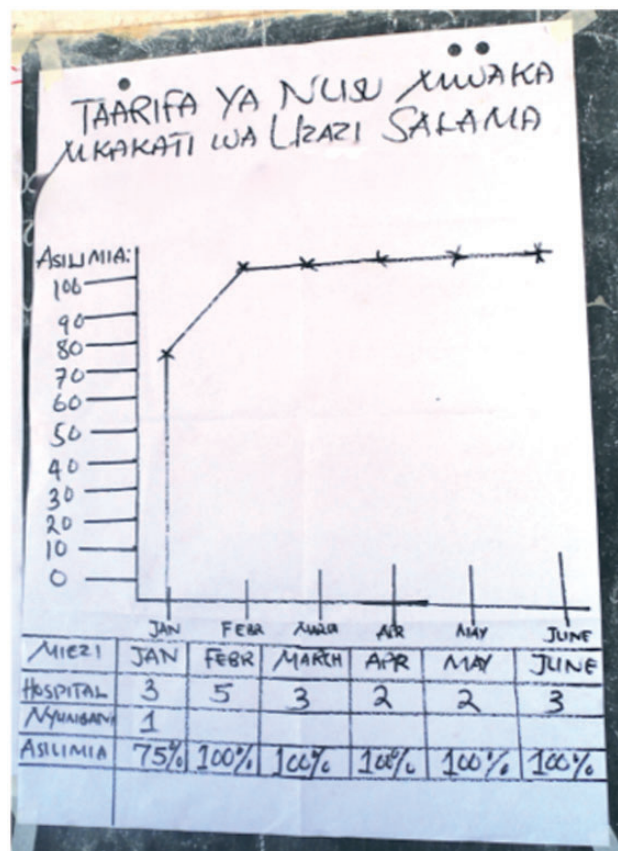 TAARIFA YA NUSU MWAKA
MKAKATI WA UZAZI SALAMA
ASILIMIA:
100
90
80
70
60
50
40
30
20
10
0
JAN FEBR MARCH APR MAY JUNE
MIEZI JAN FEBR MARCH APR MAY JUNE
HOSPITAL 3 5 3 2 2 3
NYUMBANI 1
ASILIMIA 75% 100% 100% 100% 100% 100%